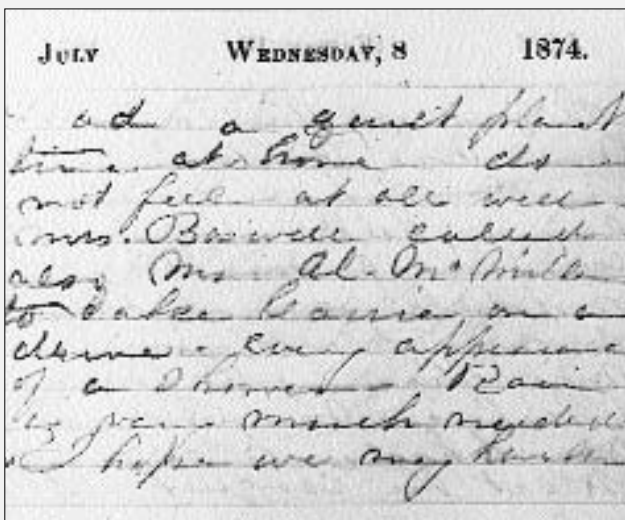 JULY WEDNESDAY, 8 1874.
ad a quiet
time at home do
not feel at all well
Mrs. Boswell called
also Mr. Al. Mc
to take on a
drive every
of a shower Rain
is very much needed
I hope we may have